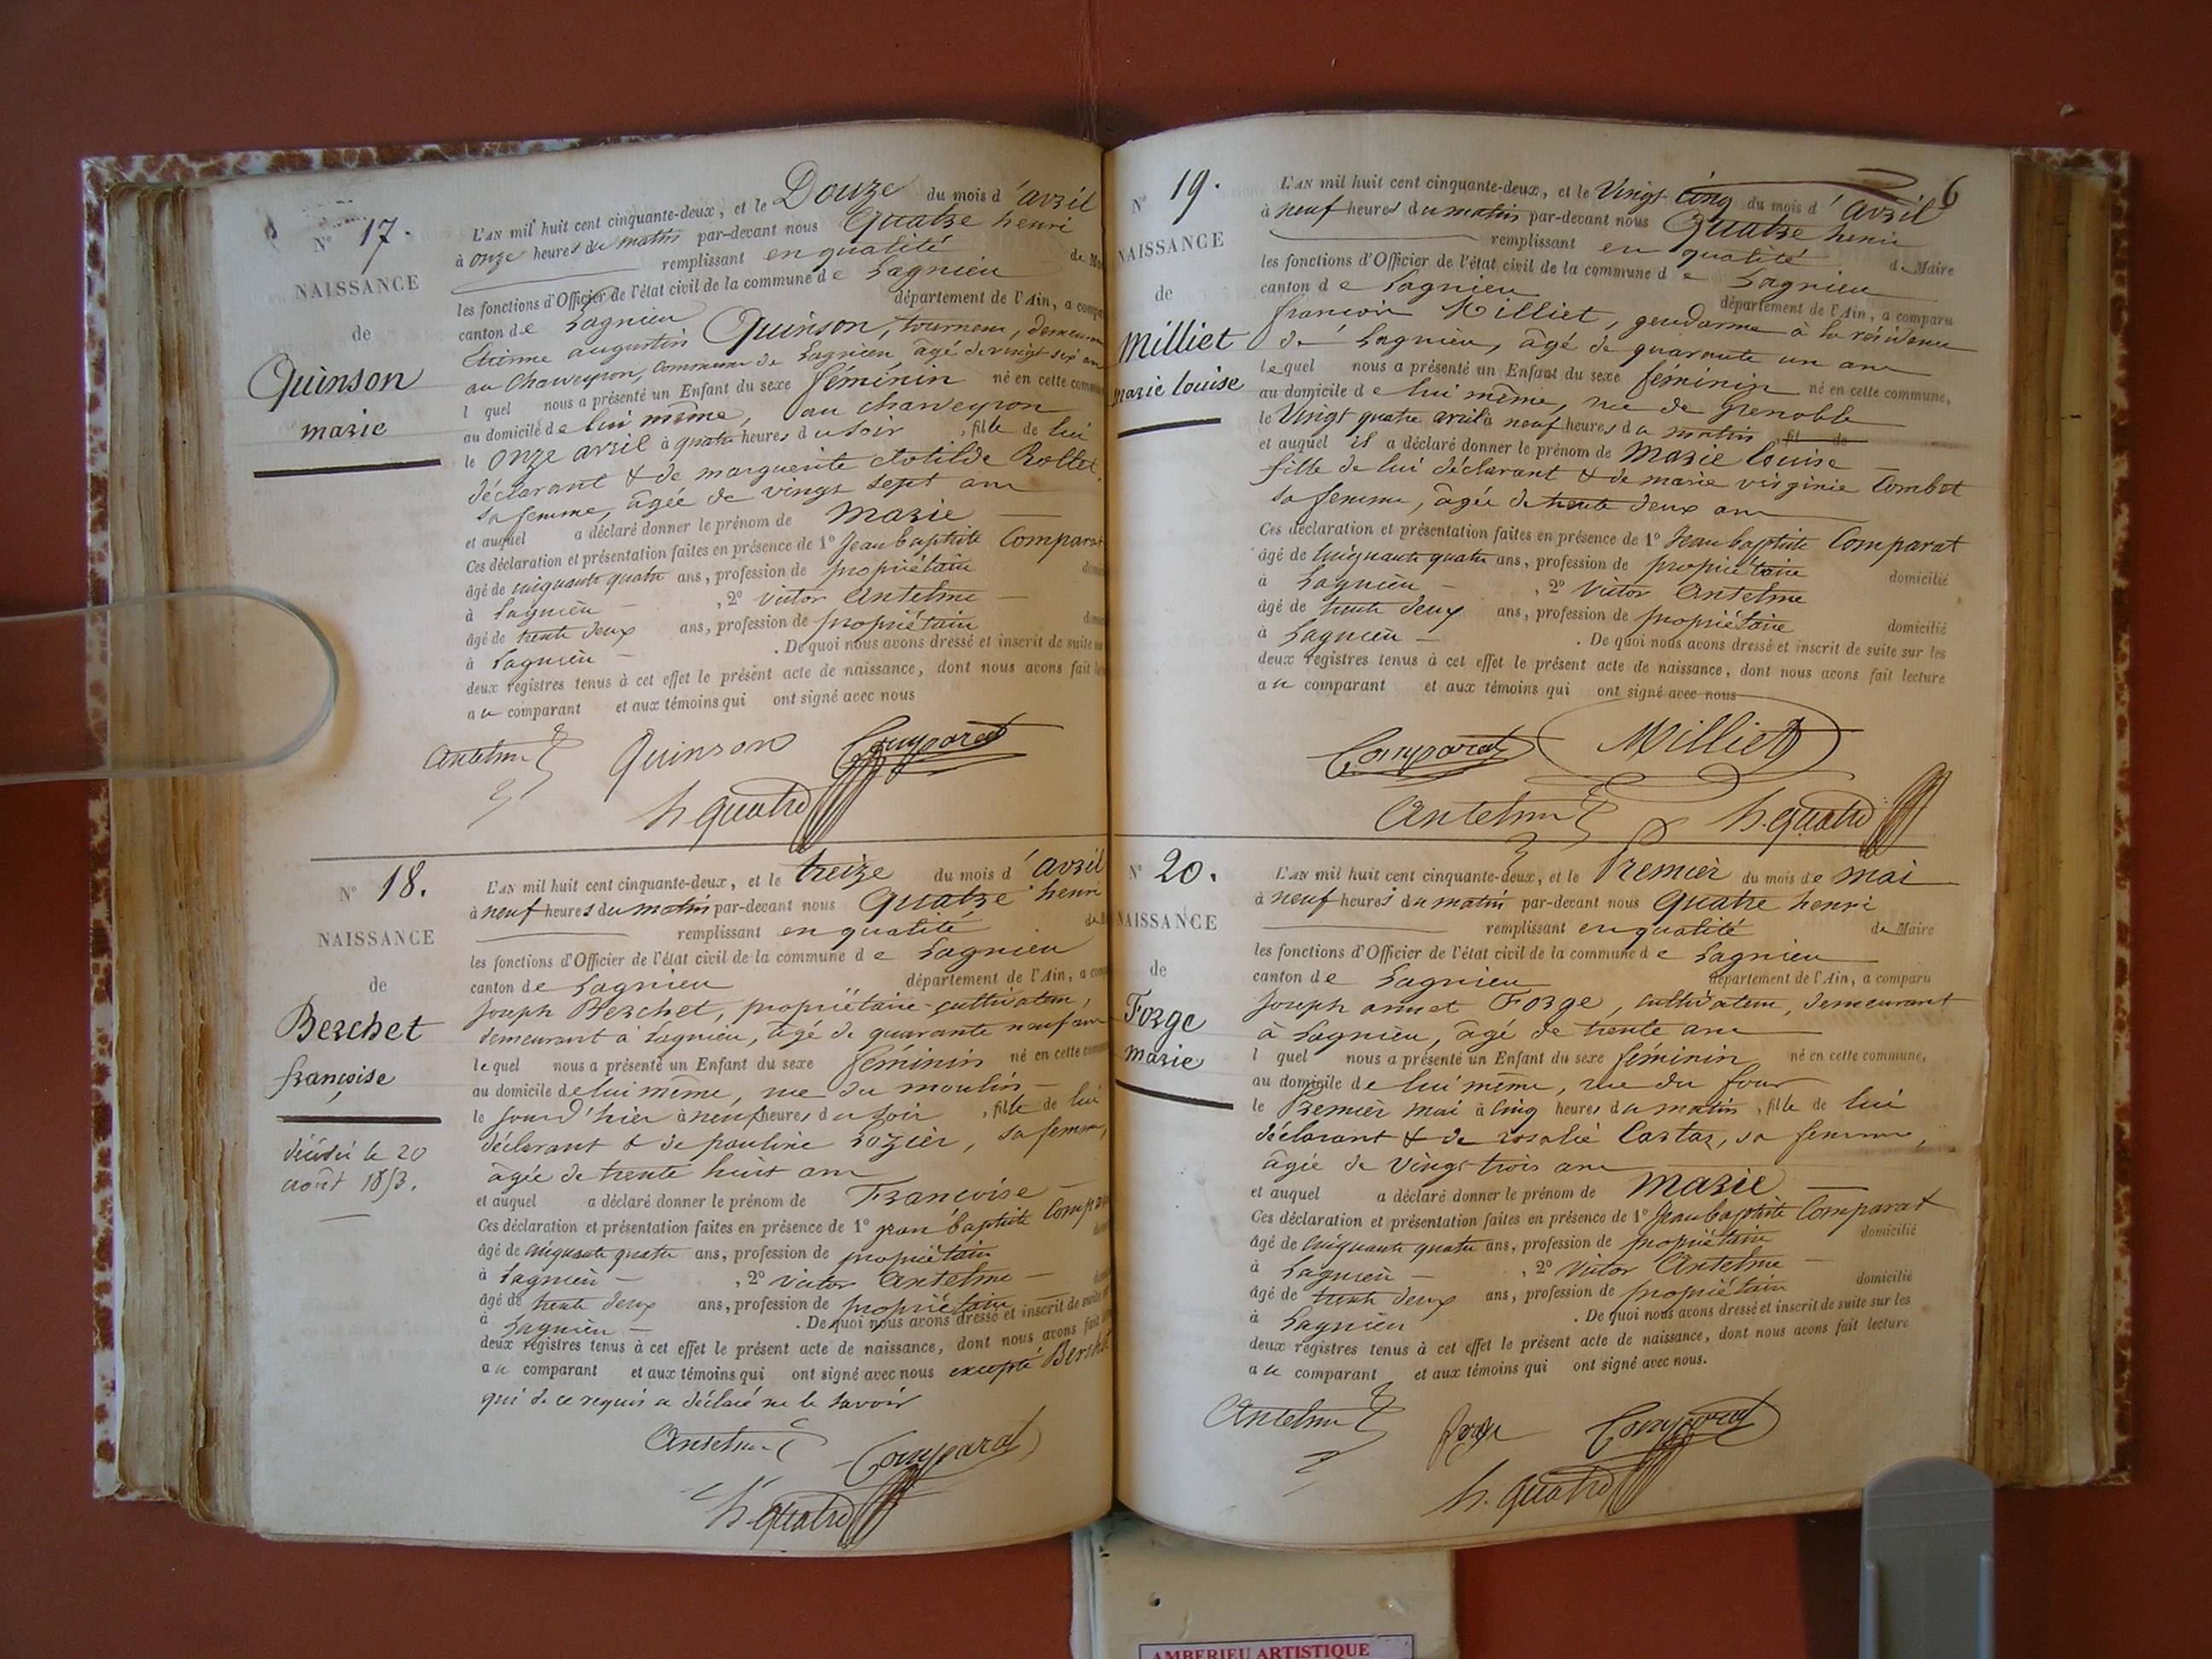 N° 17.
NAISSANCE
de
Quinson
marie
L'AN mil huit cent cinquante-deux, et le Douze du mois d'avril
à onze heures du matin par-devant nous Quatre henri
remplissant en qualité de M
les fonctions d'Officier de l'état civil de la commune de Lagnieu
canton de Lagnieu département de l'Ain, a compa
Etienne augustin Quinson, tourneur, demeurant
au Charveyron, commune de Lagnieu, âgé de vingt-six ans
l quel nous a présenté un Enfant du sexe féminin né en cette comm
au domicile de lui même, au charveyron
le onze avril à quatre heures du soir, fille de lui
déclarant & de marguerite clotilde Rollet
sa femme, âgée de vingt sept ans
et auquel a déclaré donner le prénom de Marie
Ces déclaration et présentation faites en présence de 1° Jean baptiste Comparat
âgé de cinquante quatre ans, profession de propriétaire domi
à Lagnieu , 2° Victor Antelme
âgé de trente deux ans, profession de propriétaire domi
à Lagnieu . De quoi nous avons dressé et inscrit de suite sur
deux registres tenus à cet effet le présent acte de naissance, dont nous avons fait le
au comparant et aux témoins qui ont signé avec nous
Antelme Quinson Comparat
h. quatre
N° 18.
NAISSANCE
de
Berchet
françoise
décédée le 20
août 1853.
L'AN mil huit cent cinquante-deux, et le treize du mois d'avril
à neuf heures du matin par-devant nous Quatre henri
remplissant en qualité de M
les fonctions d'Officier de l'état civil de la commune de Lagnieu
canton de Lagnieu département de l'Ain, a com
Joseph Berchet, propriétaire-cultivateur,
demeurant à Lagnieu, âgé de quarante neuf ans
lequel nous a présenté un Enfant du sexe féminin né en cette comm
au domicile de lui même, rue du moulin
le jour d'hier à neuf heures du soir, fille de lui
déclarant & de pauline rozier, sa femme,
âgée de trente huit ans
et auquel a déclaré donner le prénom de Françoise
Ces déclaration et présentation faites en présence de 1° jean baptiste Compar
âgé de cinquante quatre ans, profession de propriétaire
à Lagnieu , 2° Victor Antelme
âgé de trente deux ans, profession de propriétaire
à Lagnieu . De quoi nous avons dressé et inscrit de suite
deux registres tenus à cet effet le présent acte de naissance, dont nous avons fait
au comparant et aux témoins qui ont signé avec nous excepté Berchet
qui de ce requis a déclaré ne le savoir
Antelme Comparat
h. quatre
6
N° 19.
NAISSANCE
de
Milliet
marie louise
L'AN mil huit cent cinquante-deux, et le Vingt cinq du mois d'avril
à neuf heures du matin par-devant nous Quatre henri
remplissant en qualité de Maire
les fonctions d'Officier de l'état civil de la commune de Lagnieu
canton de Lagnieu département de l'Ain, a comparu
françois Milliet, gendarme à la résidence
de Lagnieu, âgé de quarante un ans
lequel nous a présenté un Enfant du sexe féminin né en cette commune,
au domicile de lui même, rue de grenoble
le Vingt quatre avril à neuf heures du matin, fil de
et auquel il a déclaré donner le prénom de Marie louise
fille de lui déclarant & de marie virginie Combet
sa femme, âgée de trente deux ans
Ces déclaration et présentation faites en présence de 1° Jean baptiste Comparat
âgé de cinquante quatre ans, profession de propriétaire domicilié
à Lagnieu , 2° Victor Antelme
âgé de trente deux ans, profession de propriétaire domicilié
à Lagnieu . De quoi nous avons dressé et inscrit de suite sur les
deux registres tenus à cet effet le présent acte de naissance, dont nous avons fait lecture
au comparant et aux témoins qui ont signé avec nous
Comparat Milliet
Antelme h. quatre
N° 20.
NAISSANCE
de
Forge
marie
L'AN mil huit cent cinquante-deux, et le Premier du mois de mai
à neuf heures du matin par-devant nous Quatre henri
remplissant en qualité de Maire
les fonctions d'Officier de l'état civil de la commune de Lagnieu
canton de Lagnieu département de l'Ain, a comparu
Joseph anmet Forge, cultivateur, demeurant
à Lagnieu, âgé de trente ans
l quel nous a présenté un Enfant du sexe féminin né en cette commune,
au domicile de lui même, rue du four
le Premier mai à cinq heures du matin, fille de lui
déclarant & de rosalie Castaz, sa femme,
âgée de vingt trois ans
et auquel a déclaré donner le prénom de Marie
Ces déclaration et présentation faites en présence de 1° Jean baptiste Comparat
âgé de cinquante quatre ans, profession de propriétaire domicilié
à Lagnieu , 2° Victor Antelme
âgé de trente deux ans, profession de propriétaire domicilié
à Lagnieu . De quoi nous avons dressé et inscrit de suite sur les
deux registres tenus à cet effet le présent acte de naissance, dont nous avons fait lecture
au comparant et aux témoins qui ont signé avec nous.
Antelme forge Comparat
h. quatre
AMBERIEU ARTISTIQUE